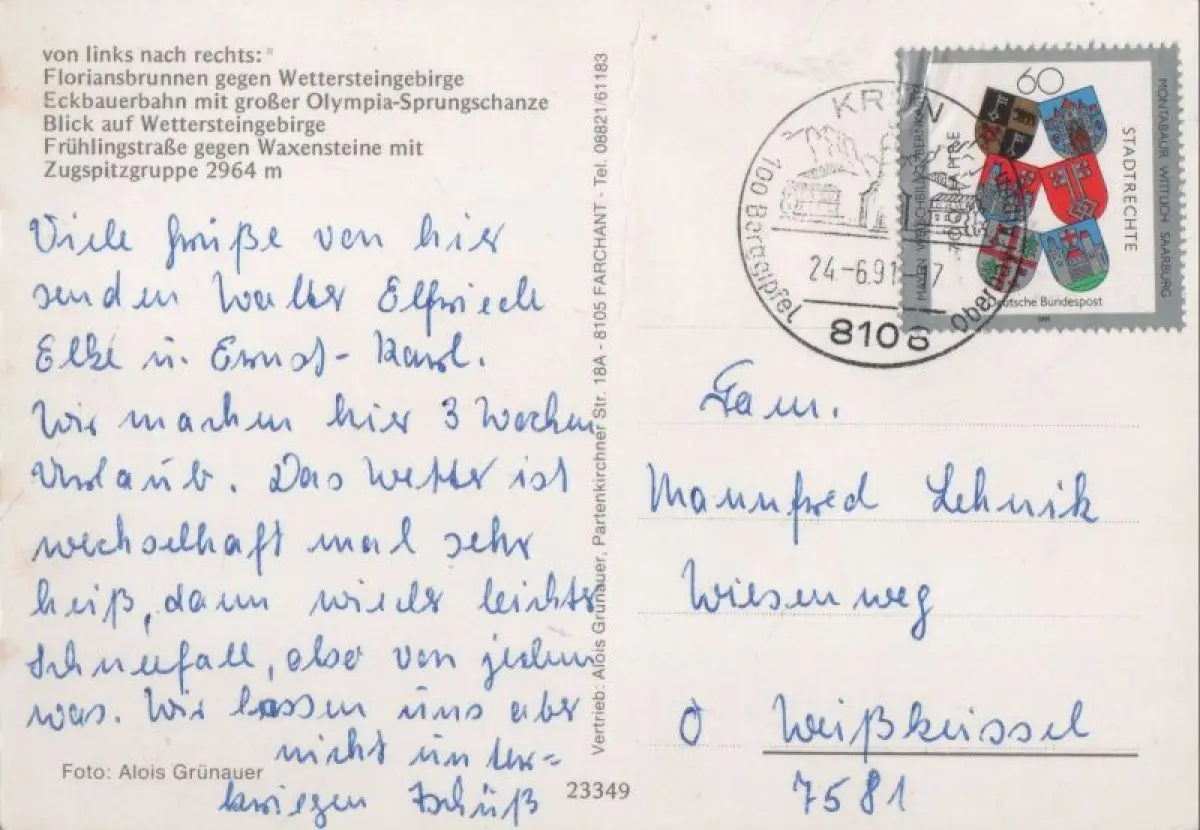 von links nach rechts:
Floriansbrunnen gegen Wettersteingebirge
Eckbauerbahn mit großer Olympia-Sprungschanze
Blick auf Wettersteingebirge
Frühlingstraße gegen Waxensteine mit
Zugspitzgruppe 2964 m
Viele Grüße von hier
senden Walter Elfriede
Elke u. Ernst-Karl.
Wir machen hier 3 Wochen
Urlaub. Das Wetter ist
wechselhaft mal sehr
heiß, dann wieder leichter
Schneefall, also von jedem
was. Wir lassen uns aber
nicht unter=
kriegen Tschüß
Foto: Alois Grünauer
23349
Vertrieb: Alois Grünauer, Partenkirchner Str. 18A - 8105 FARCHANT - Tel. 08821/61183
KRÜN
100 Berggipfel
24.-6.91-17
8108
60
STADTRECHTE
MONTABAUR WITTLICH SAARBURG
700 JAHRE
Deutsche Bundespost
1991
Fam.
Mannfred Lehnik
Wiesenweg
O Weißkeissel
7581